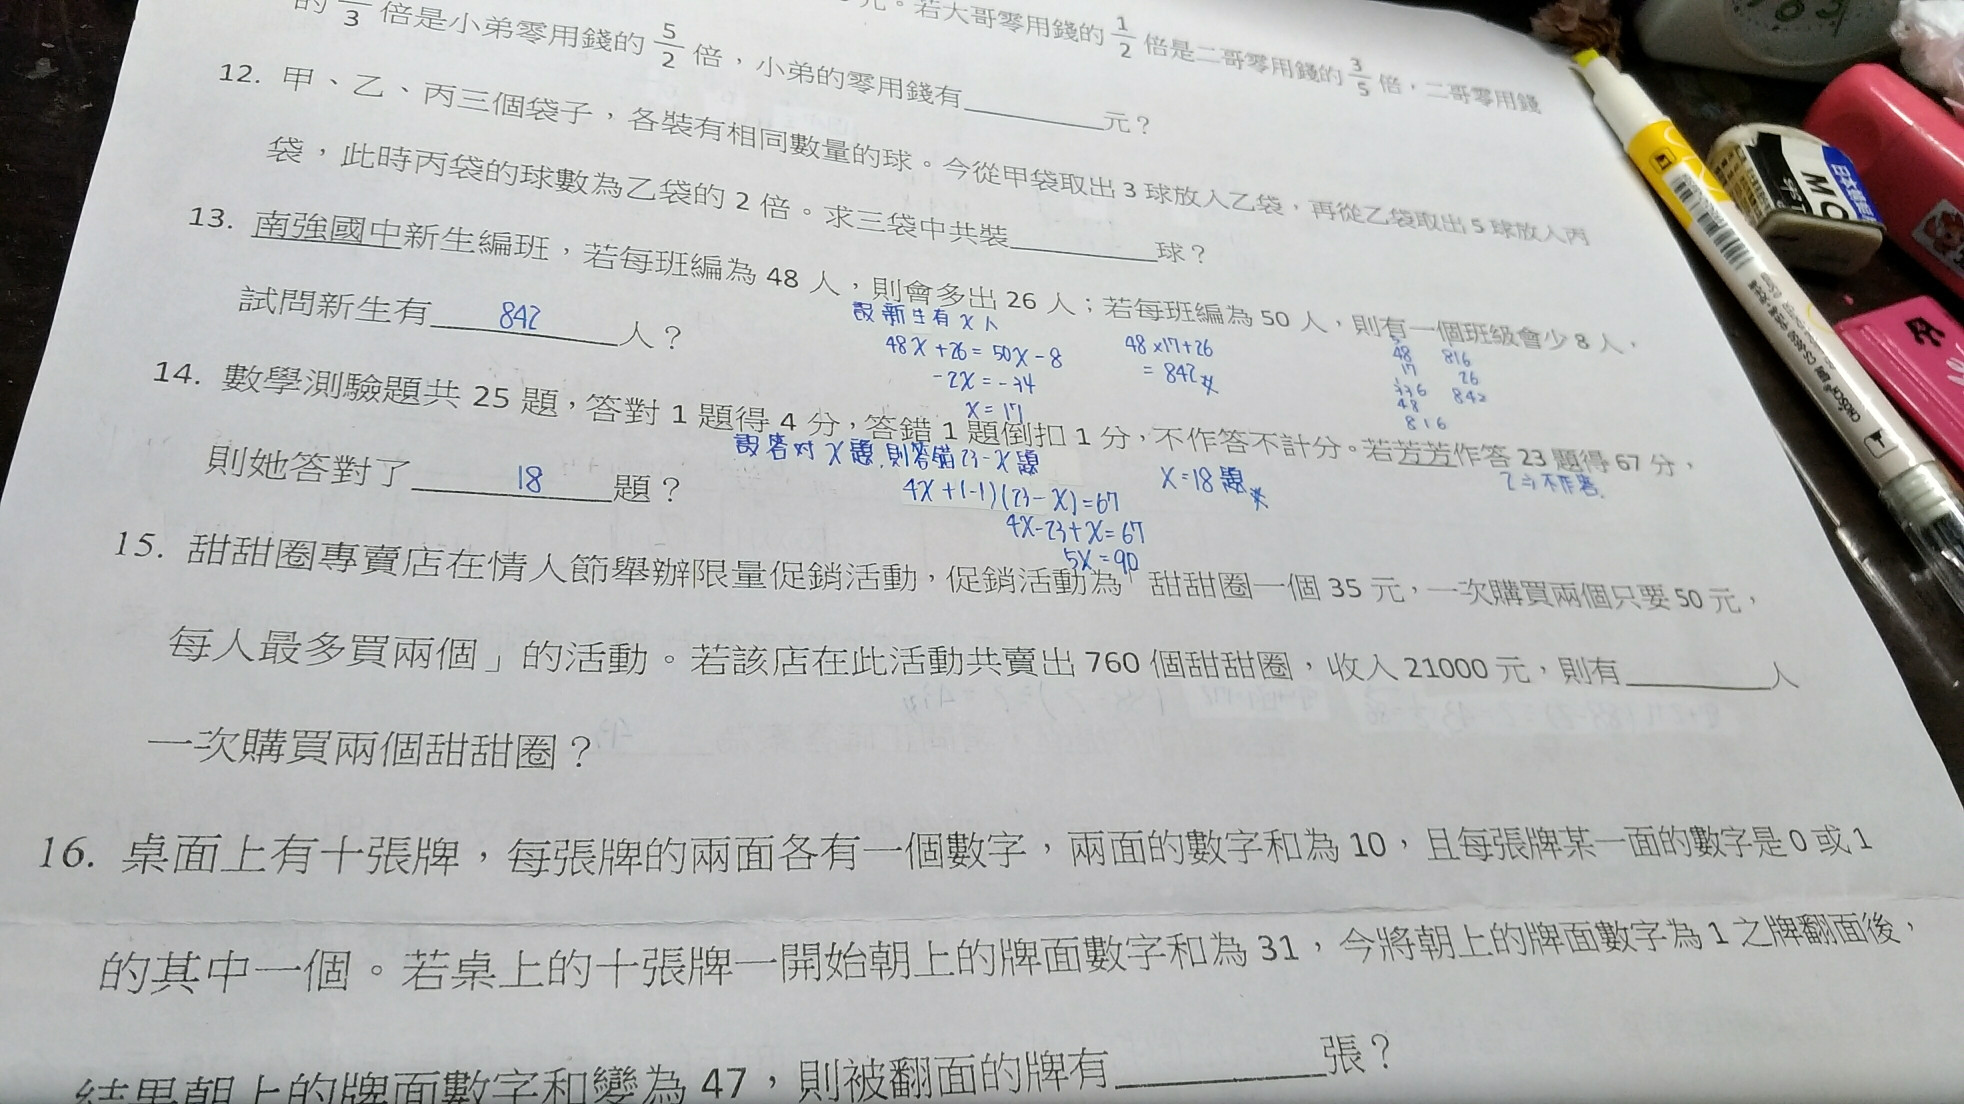 元。若大哥零用錢的 1/2 倍是二哥零用錢的 3/5 倍，二哥零用錢
的 /3 倍是小弟零用錢的 5/2 倍，小弟的零用錢有______元？
12. 甲、乙、丙三個袋子，各裝有相同數量的球。今從甲袋取出 3 球放入乙袋，再從乙袋取出 5 球放入丙
袋，此時丙袋的球數為乙袋的 2 倍。求三袋中共裝______球？
13. 南強國中新生編班，若每班編為 48 人，則會多出 26 人；若每班編為 50 人，則有一個班級會少 8 人，
試問新生有 842 人？
設新生有 X 人
48X + 26 = 50X - 8
-2X = -34
X = 17
48 x17+26
= 842
48
17
336
48
816
816
26
842
14. 數學測驗題共 25 題，答對 1 題得 4 分，答錯 1 題倒扣 1 分，不作答不計分。若芳芳作答 23 題得 67 分，
則她答對了 18 題？
設答对 X 題,則答錯 23-X 題
4X + (-1)(23-X)=67
4X-23+X=67
5X=90
X=18 題
2⇒不作答.
15. 甜甜圈專賣店在情人節舉辦限量促銷活動，促銷活動為「甜甜圈一個 35 元，一次購買兩個只要 50 元，
每人最多買兩個」的活動。若該店在此活動共賣出 760 個甜甜圈，收入 21000 元，則有______人
一次購買兩個甜甜圈？
16. 桌面上有十張牌，每張牌的兩面各有一個數字，兩面的數字和為 10，且每張牌某一面的數字是 0 或 1
的其中一個。若桌上的十張牌一開始朝上的牌面數字和為 31，今將朝上的牌面數字為 1 之牌翻面後，
結果朝上的牌面數字和變為 47，則被翻面的牌有______張？